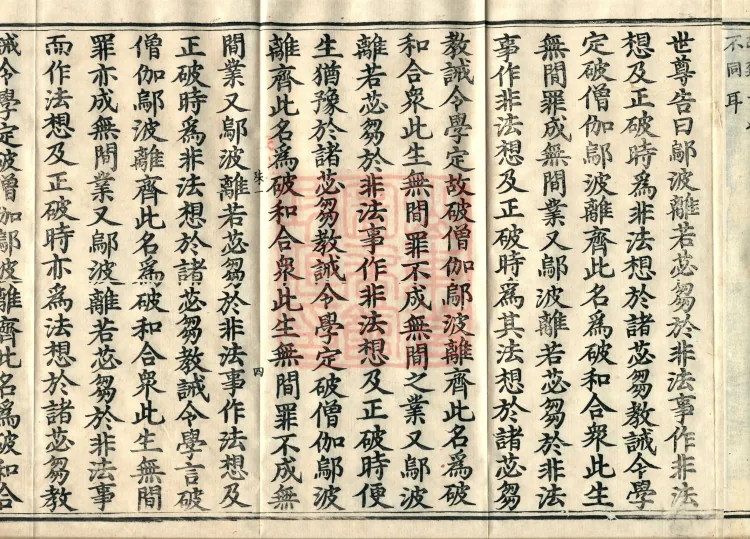 不同耳
世尊告曰鄔波離若苾芻於非法事作非法
想及正破時為非法想於諸苾芻教誡令學
定破僧伽鄔波離齊此名為破和合衆此生
無間罪成無間業又鄔波離若苾芻於非法
事作非法想及正破時為其法想於諸苾芻
教誡令學定故破僧伽鄔波離齊此名為破
和合衆此生無間罪不成無間之業又鄔波
離若苾芻於非法事作非法想及正破時便
生猶豫於諸苾芻教誡令學定破僧伽鄔波
離齊此名為破和合衆此生無間罪不成無
四
間業又鄔波離若苾芻於非法事作法想及
正破時為非法想於諸苾芻教誡令學言破
僧伽鄔波離齊此名為破和合衆此生無間
罪亦成無間業又鄔波離若苾芻於非法事
而作法想及正破時亦為法想於諸苾芻教
誡令學定破僧伽鄔波離齊此名為破和合